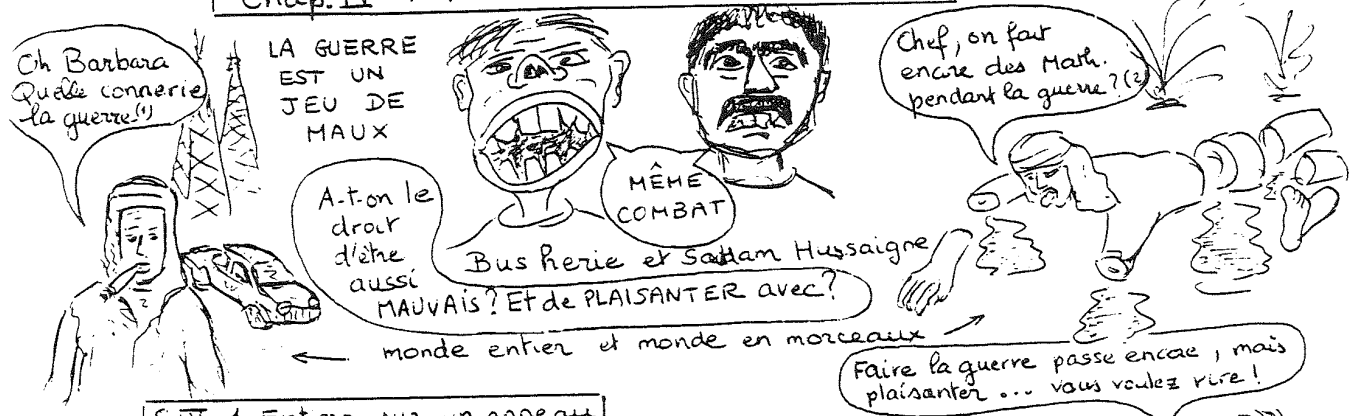 Chap. II
Oh Barbara
Quelle connerie
la guerre!(1)
LA GUERRE
EST UN
JEU DE
MAUX
A-t-on le
droit
d'être
aussi
MAUVAIS? Et de PLAISANTER avec?
MÊME
COMBAT
Bus herie et Saddam Hussaigne
Chef, on fait
encore des Math.
pendant la guerre?(2)
monde entier et monde en morceaux
Faire la guerre passe encore, mais
plaisanter... vous voulez rire!